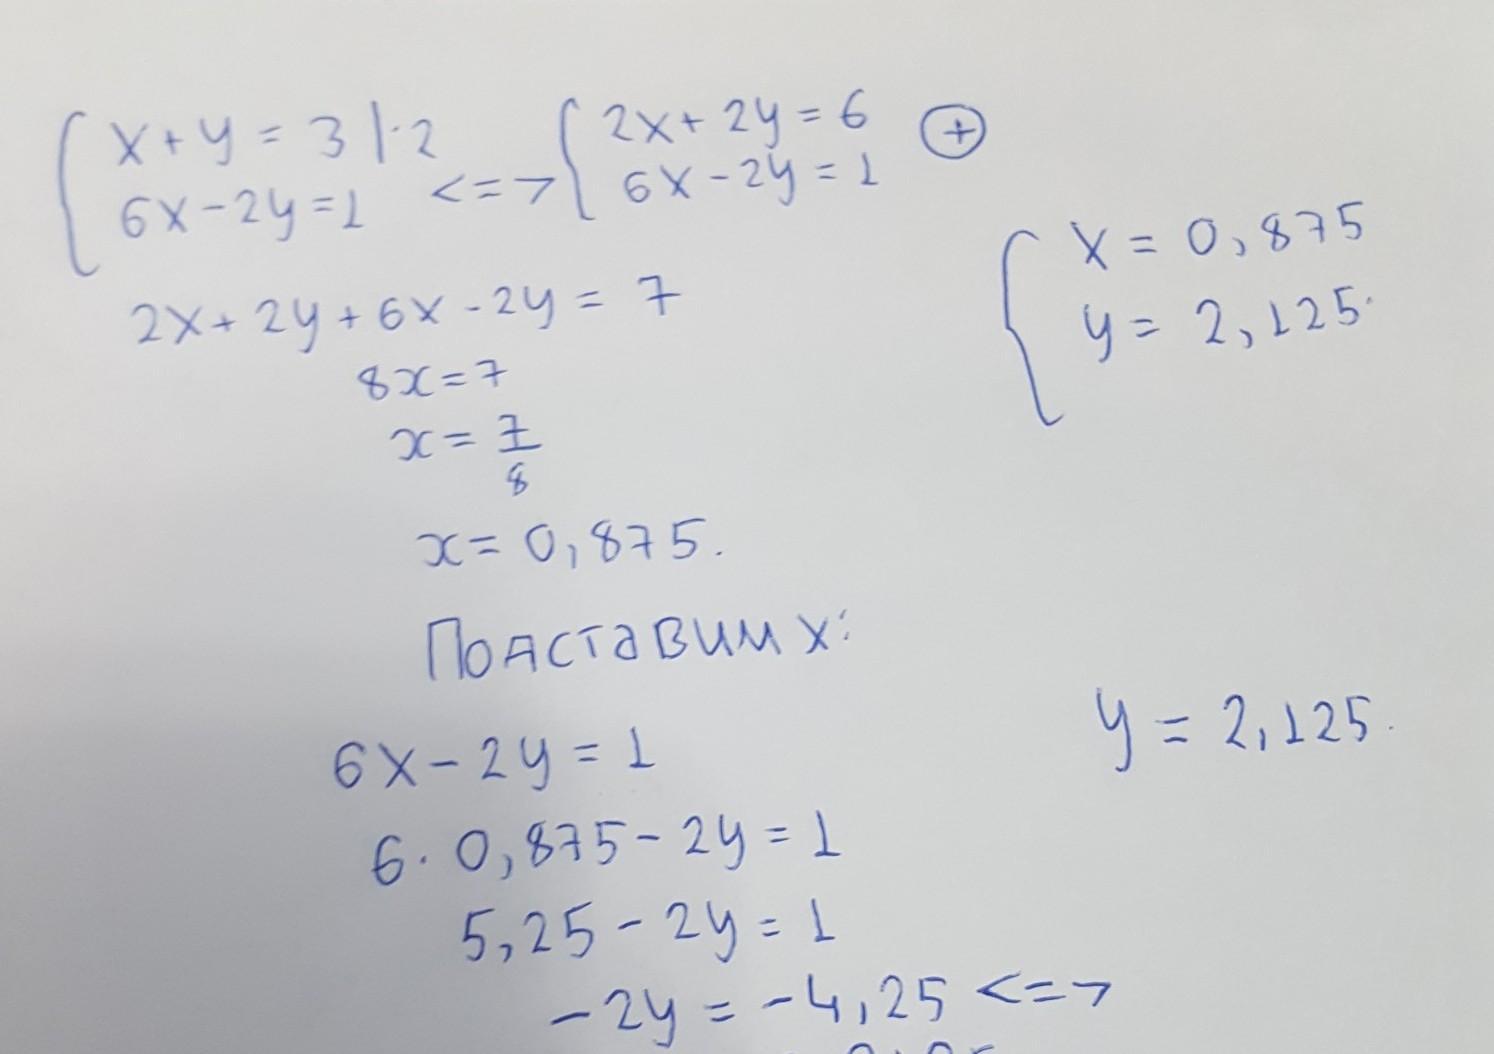 x + y = 3 |·2
6x - 2y = 1 <=>
2x + 2y = 6 ⊕
6x - 2y = 1
2x + 2y + 6x - 2y = 7
8x = 7
x = 7/8
x = 0,875.
Подставим x:
6x - 2y = 1
6 · 0,875 - 2y = 1
5,25 - 2y = 1
-2y = -4,25 <=>
x = 0,875
y = 2,125.
y = 2,125.